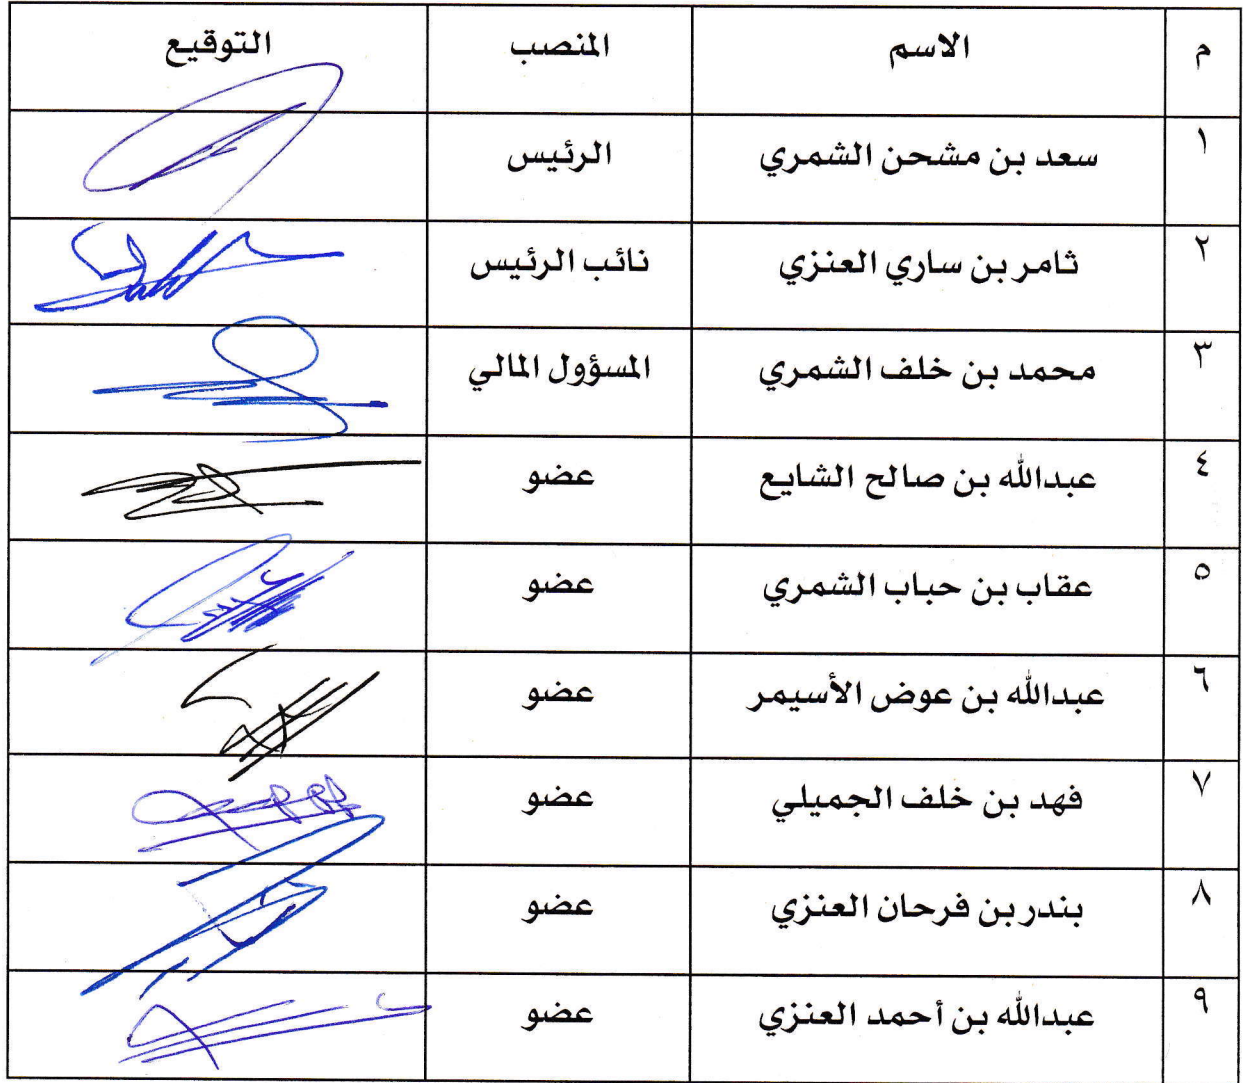 م الاسم المنصب التوقيع
١ سعد بن مشحن الشمري الرئيس
٢ ثامر بن ساري العنزي نائب الرئيس
٣ محمد بن خلف الشمري المسؤول المالي
٤ عبدالله بن صالح الشايع عضو
٥ عقاب بن حباب الشمري عضو
٦ عبدالله بن عوض الأسيمر عضو
٧ فهد بن خلف الجميلي عضو
٨ بندر بن فرحان العنزي عضو
٩ عبدالله بن أحمد العنزي عضو